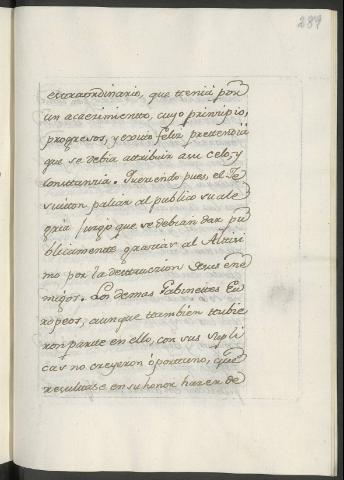 289
extraordinario, que tenia por
un acaecimiento, cuyo principio,
progresos, y exito feliz pretendia
que se debia atribuir a su celo, y
constancia. Queriendo pues, el
paliar al publico su ale
gria juzgó que se debian dar pu
blicamente gracias al Altisi
mo por la destruccion de sus ene
migos. Los demas Gabinettes Eu
ropeos, aunque tambien tubie
ron parte en ello, con sus supli
cas no creyeron oportuno, que
resultase en su honor hazer de